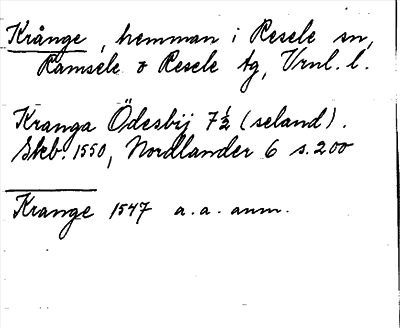 Krånge, hemman i Resele sn,
Ramsele o Resele tg, Vrnl. l.
Kranga Ödesbij 7½ (seland).
Skb. 1550, Nordlander 6 s. 200
Krange 1547 a. a. anm.